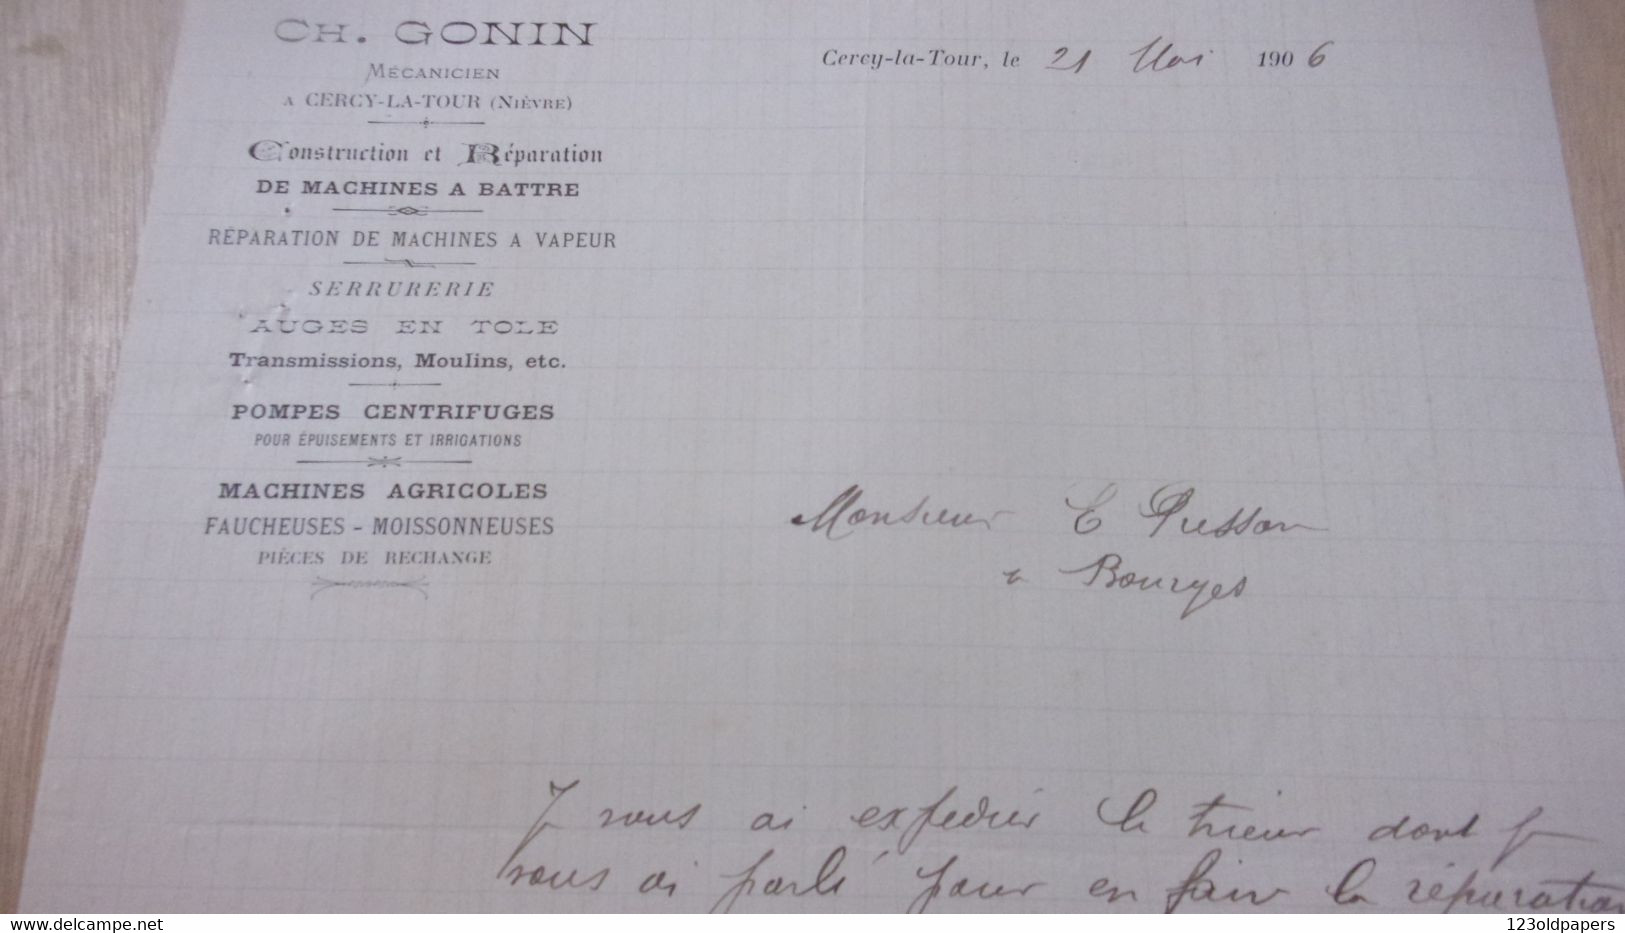 CH. GONIN
MÉCANICIEN
A CERCY-LA-TOUR (NIÈVRE)
Construction et Réparation
DE MACHINES A BATTRE
RÉPARATION DE MACHINES A VAPEUR
SERRURERIE
AUGES EN TOLE
Transmissions, Moulins, etc.
POMPES CENTRIFUGES
POUR ÉPUISEMENTS ET IRRIGATIONS
MACHINES AGRICOLES
FAUCHEUSES - MOISSONNEUSES
PIÈCES DE RECHANGE
Cercy-la-Tour, le 21 Mai 1906
Monsieur E
a Bourges
J vous ai expedier le trieur dont
vous ai parlé pour en fair la réparation
delcampe.net
123oldpapers